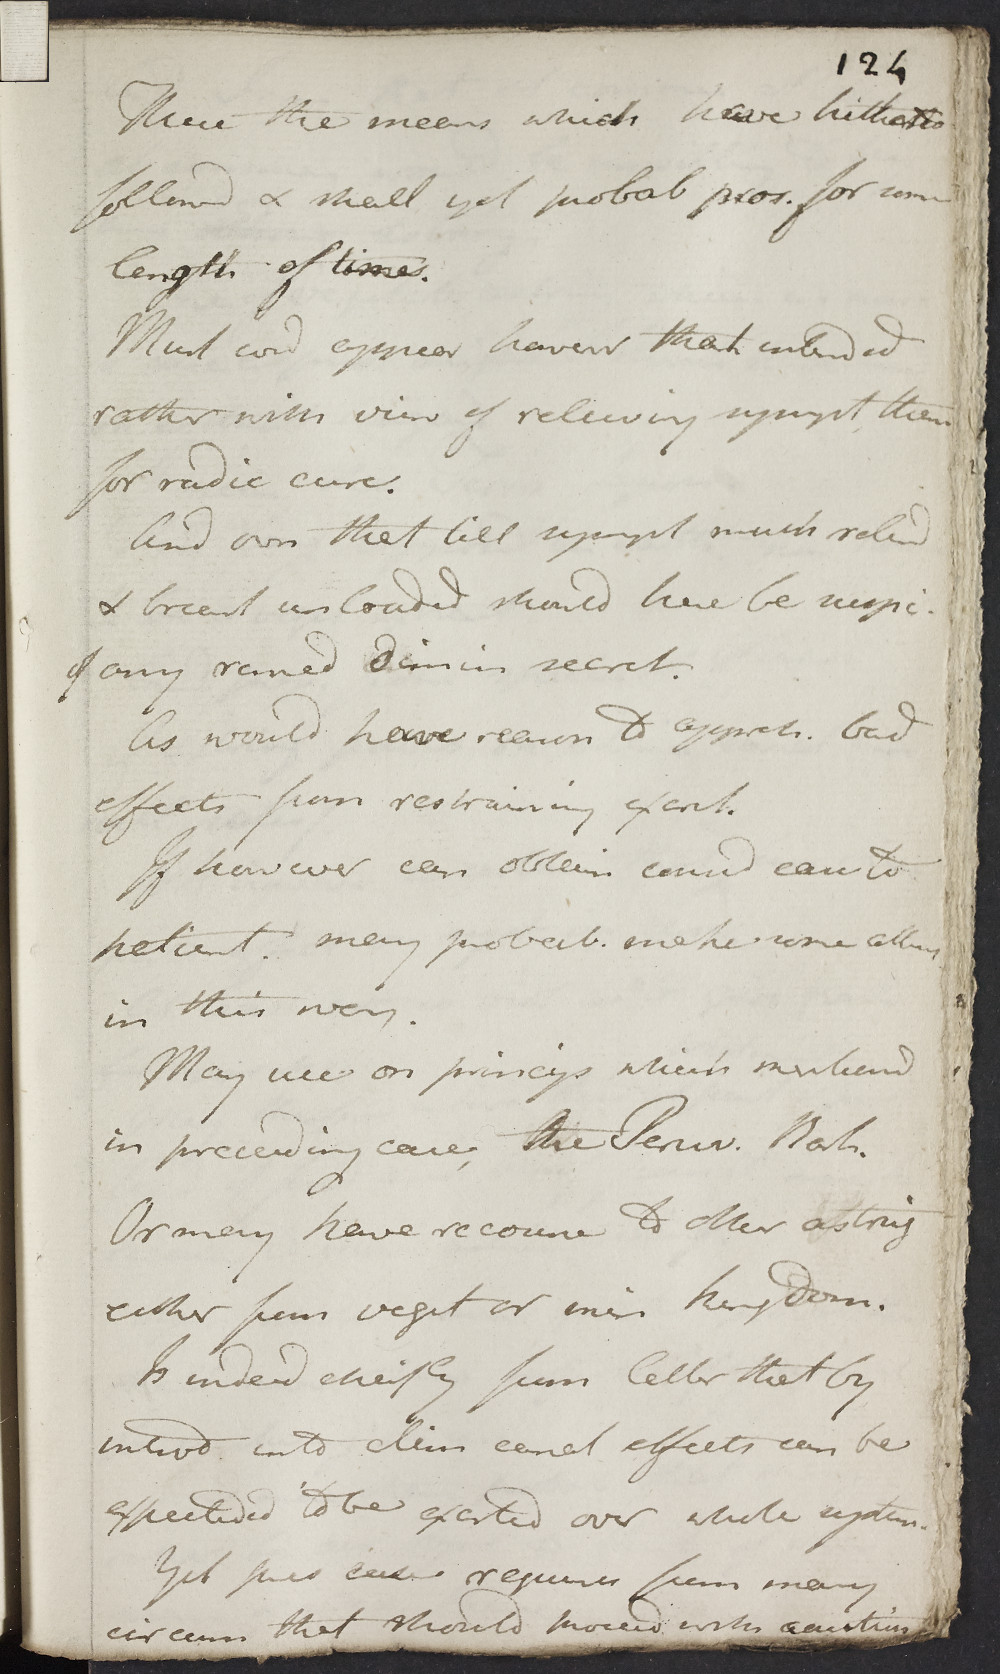 124
These the means which have hitherto
followd & shall yet probab pros. for some
length of time.
Must word appear however that intended
rather with view of relieving sympt then
for radic cure.
And own that till sympt much reliev'd
& breast unloaded should here be suspi.
of any remed dimin secret.
As would have reason to appreh. bad
effects from restraining exeret.
If however can obtain cons'd ease to
patient. may probab. make some attem
in this way.
May use on princips which mentiond
in preceeding case, the Peruv. Bark.
Or may have recourse to other astring
either from veget or min kingdom.
Is indeed cheifly from latter that by
introd into alim canal effects can be
expectedd to be exerted over whole system.
Yet pres case requires from many
circum that should proceed with caution